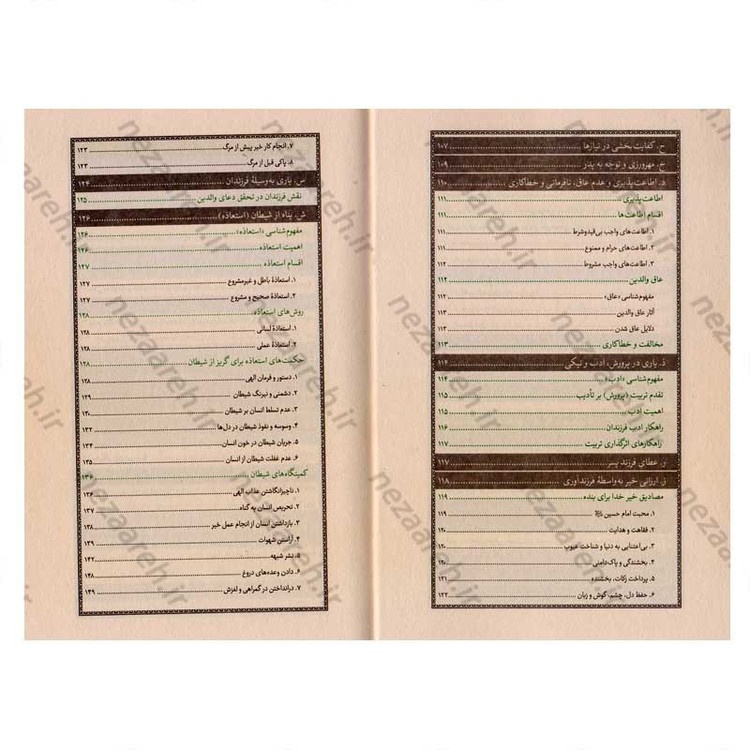 ح. کفایت‌بخشی در نیازها ۱۰۷
خ. مهرورزی و توجه به پدر ۱۰۹
د. اطاعت‌پذیری و عدم عاق، نافرمانی و خطاکاری ۱۱۰
اطاعت‌پذیری ۱۱۱
اقسام اطاعت‌ها ۱۱۱
۱. اطاعت‌های واجب بی‌قیدوشرط ۱۱۱
۲. اطاعت‌های حرام و ممنوع ۱۱۱
۳. اطاعت‌های واجب مشروط ۱۱۱
عاق والدین ۱۱۲
مفهوم‌شناسی «عاق» ۱۱۲
آثار عاق والدین ۱۱۳
دلایل عاق شدن ۱۱۳
مخالفت و خطاکاری ۱۱۳
ذ. یاری در پرورش، ادب و نیکی ۱۱۴
مفهوم‌شناسی «ادب» ۱۱۴
تقدم تربیت (پرورش) بر تأدیب ۱۱۵
اهمیت ادب ۱۱۵
راهکار ادب فرزندان ۱۱۶
راهکارهای اثرگذاری تربیت ۱۱۷
ر. عطای فرزند پسر ۱۱۷
ز. ارزانی خیر به‌واسطهٔ فرزندآوری ۱۱۸
مصادیق خیر خدا برای بنده ۱۱۹
۱. محبت امام حسین ۱۱۹
۲. فقاهت و هدایت ۱۲۰
۳. بی‌اعتنایی به دنیا و شناخت عیوب ۱۲۰
۴. بخشندگی و پاک‌دامنی ۱۲۰
۵. پرداخت زکات، بخشنده ۱۲۱
۶. حفظ دل، چشم، گوش و زبان ۱۲۲
۷. انجام کار خیر پیش از مرگ ۱۲۳
۸. پاکی قبل از مرگ ۱۲۳
س. یاری به‌وسیلهٔ فرزندان ۱۲۴
نقش فرزندان در تحقق دعای والدین ۱۲۵
ش. پناه از شیطان (استعاذه) ۱۲۶
مفهوم‌شناسی «استعاذه» ۱۲۶
اهمیت استعاذه ۱۲۶
اقسام استعاذه ۱۲۷
۱. استعاذهٔ باطل و غیرمشروع ۱۲۷
۲. استعاذهٔ صحیح و مشروع ۱۲۷
روش‌های استعاذه ۱۲۸
۱. استعاذهٔ لسانی ۱۲۸
۲. استعاذهٔ عملی ۱۲۸
حکمت‌های استعاذه برای گریز از شیطان ۱۲۸
۱. دستور و فرمان الهی ۱۲۸
۲. دشمنی و نیرنگ شیطان ۱۲۹
۳. عدم تسلط انسان بر شیطان ۱۳۰
۴. وسوسه و نفوذ شیطان در دل‌ها ۱۳۲
۵. جریان شیطان در خون انسان ۱۳۴
۶. عدم غفلت شیطان از انسان ۱۳۵
کمینگاه‌های شیطان ۱۳۶
۱. ناچیزانگاشتن عذاب الهی ۱۳۶
۲. تحریص انسان به گناه ۱۳۷
۳. بازداشتن انسان از انجام عمل خیر
۴. آراستن شهوات ۱۳۹
۵. نشر شبهه ۱۴۲
۶. دادن وعده‌های دروغ
۷. درانداختن در گمراهی و لغزش ۱۴۹
nezaareh.ir